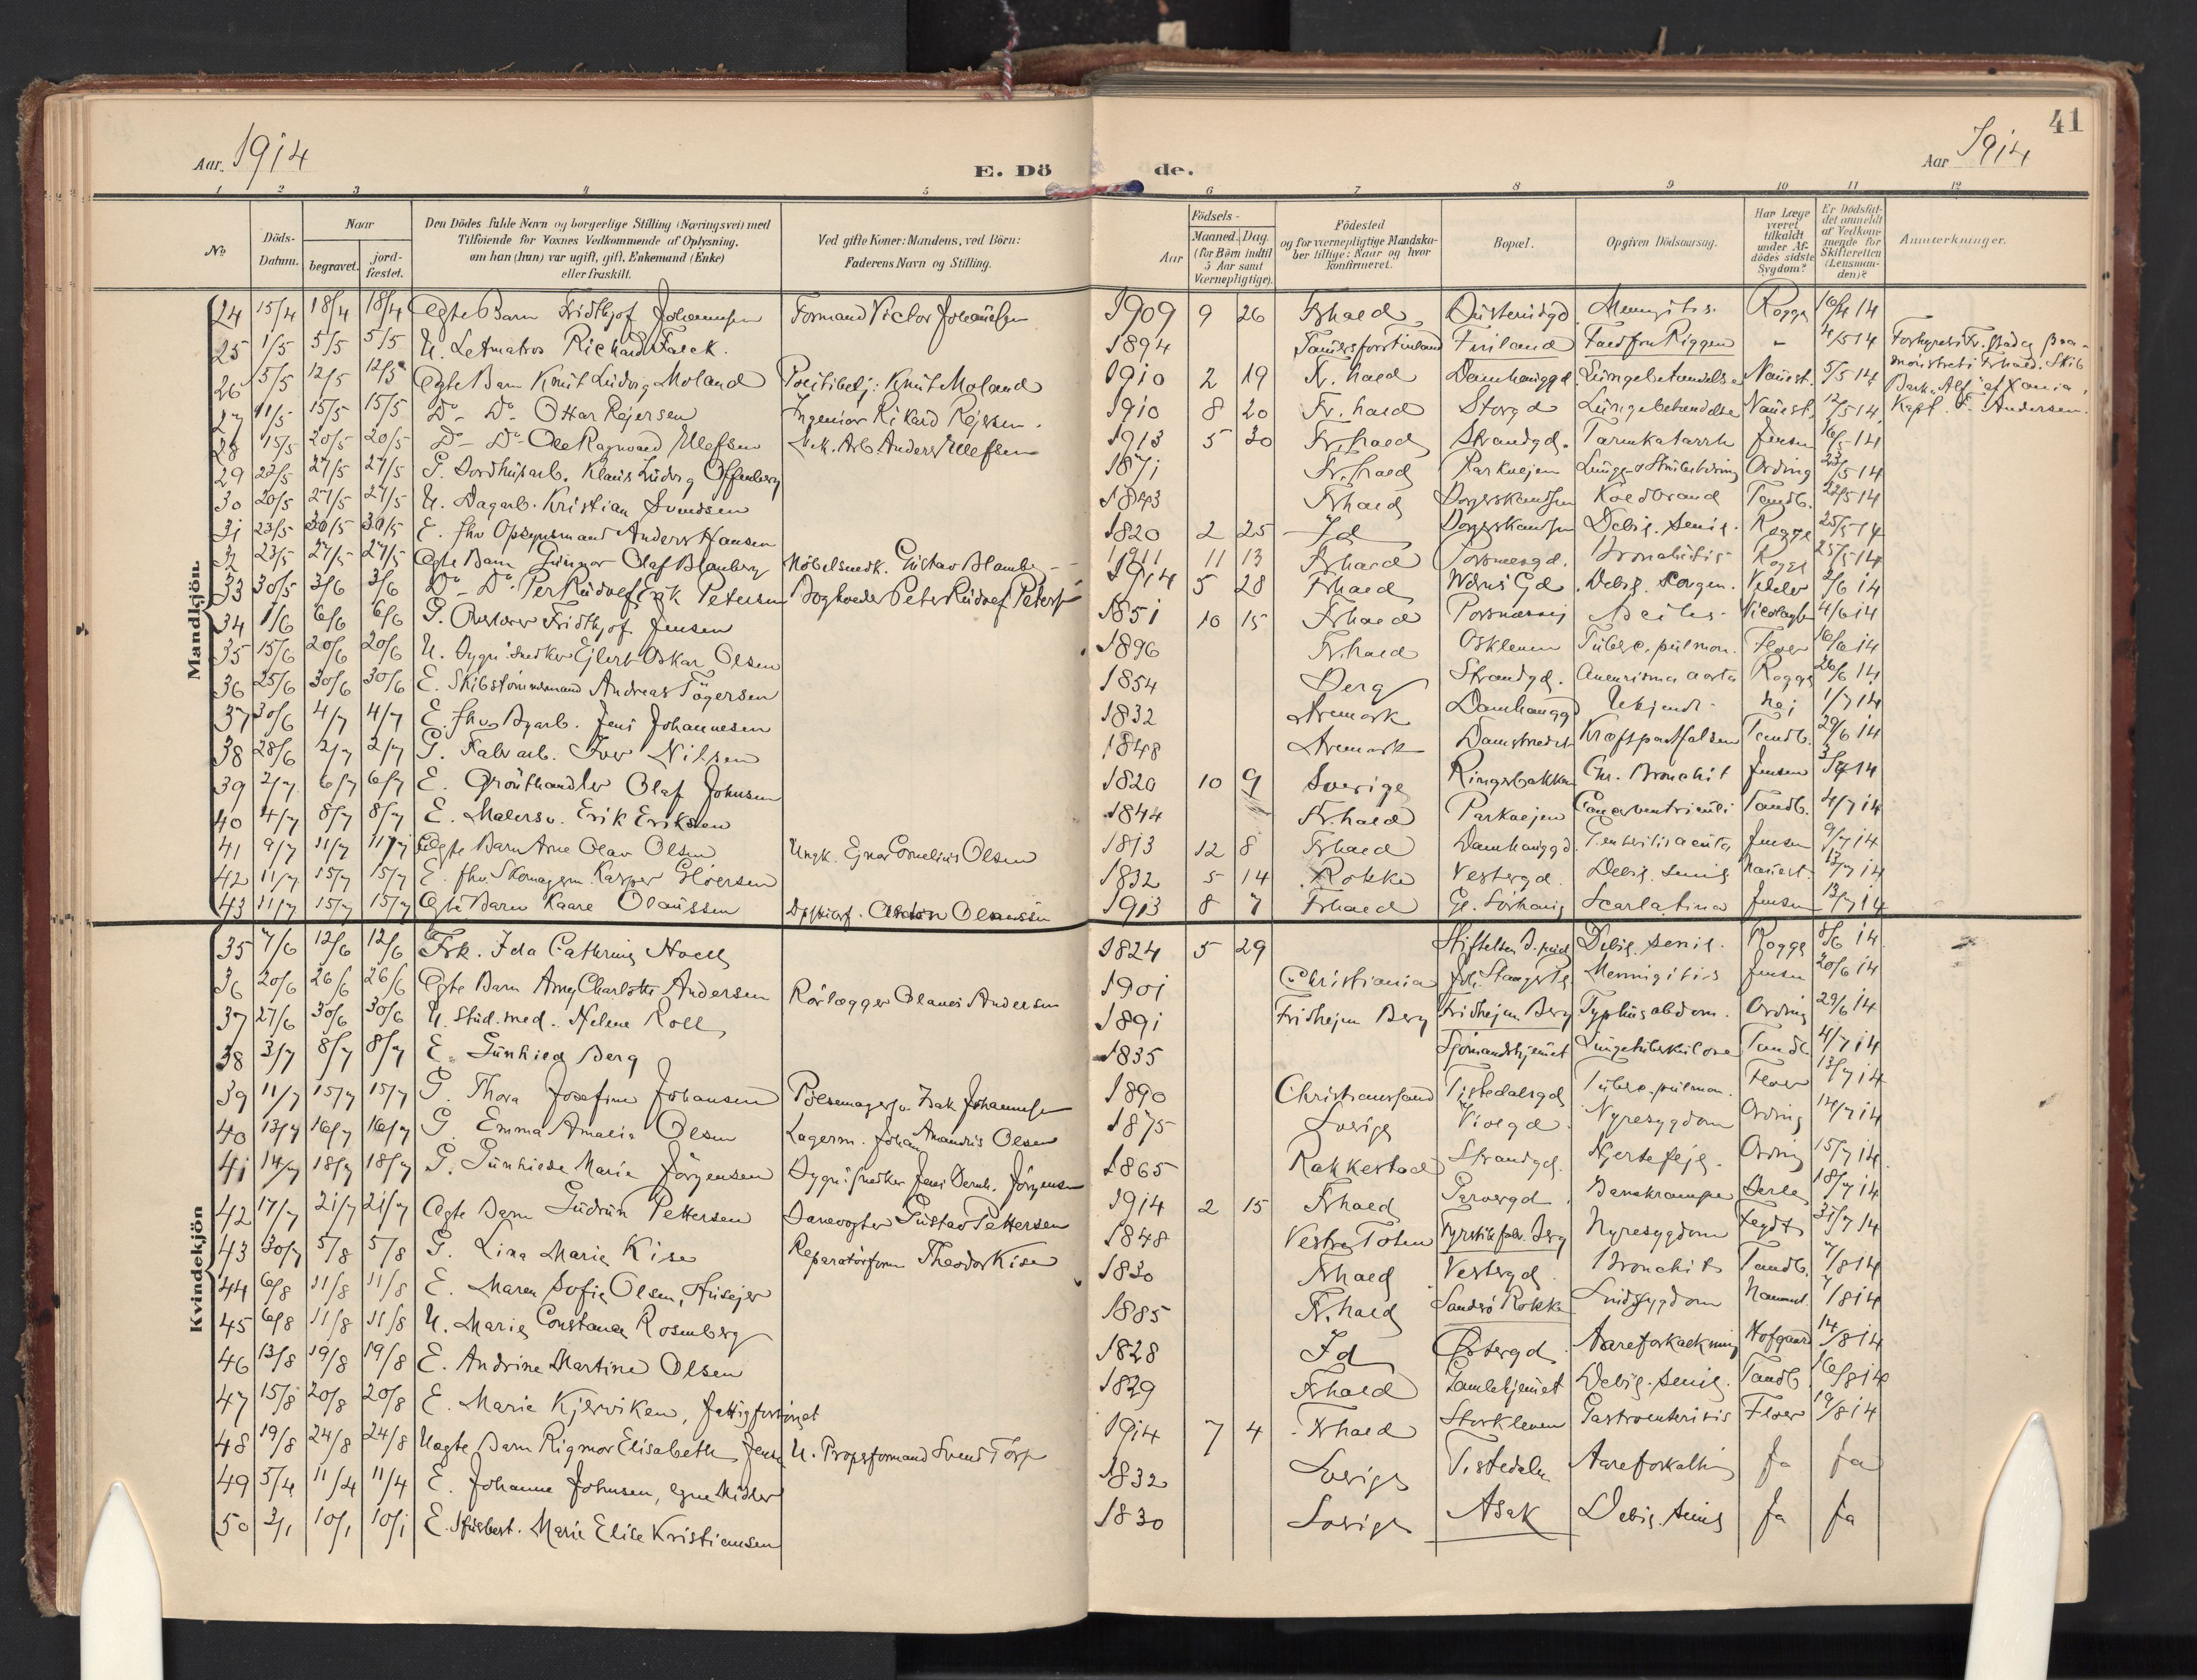 41
Aar 1914
E. Dö de.
Aar 1914
1 2 3 4 5 6 7 8 9 10 11 12
No
Döds-Datum.
Naar
begravet.
jord-fæstet.
Den Dödes fulde Navn og borgerlige Stilling (Næringsvei) med
Tilföiende for Voxnes Vedkommende af Oplysning,
om han (hun) var ugift, gift, Enkemand (Enke)
eller fraskilt.
Ved gifte Koner: Mandens, ved Börn:
Faderens Navn og Stilling.
Födsels-
Aar
Maaned. Dag.
(for Börn indtil
5 Aar samt
Værnepligtige).
Födested
og for værnepligtige Mandska-
ber tillige: Naar og hvor
Konfirmeret.
Bopæl.
Opgiven Dödsaarsag.
Har Læge
været
tilkaldt
under Af-
dödes sidste
Sygdom?
Er Dödsfal-
det anmeldt
af Vedkom-
mende for
Skifteretten
(Lensman-
den)?
Anmærkninger.
Mandkjön.
24 15/4 18/4 18/4 Ægte Barn Fridthjof Johannesen Formand Victor Johannesen 1909 9 26 Frhald Meningitis. Rogge 16/4 14
25 1/5 5/5 5/5 U. Letmatros Richard Falck. 1894 Tammersfors Finland Finland Fald fra Riggen - 4/5 14
26 5/5 12/5 12/5 Ægte Barn Knut Ludvig Moland Politibetj: Knut Moland 1910 2 19 Fr. hald Damhauggd. Lungebetændelse Nauest. 5/5 14 Bark. Alf af Xania,
27 11/5 15/5 15/5 Do - Do - Ottar Rejersen Ingeniør Rikard Rejersen. 1910 8 20 Fr. hald Storgd Lungebetændelse Nauest. 12/5 14 Kapt. F. Andersen.
28 15/5 20/5 20/5 Do - Do - Ole Ragnvald Ulefsen Mek. Arb. Anders Ulefsen 1913 5 30 Fr. hald Strandgd. Tarmkatarrh Jensen 16/5 14
29 22/5 27/5 27/5 G. Klaus Ludvig Offenberg 1871 Fr. hald Parkvejen Ording 23/5 14
30 20/5 27/5 27/5 U. Dagarb. Kristian Svendsen 1843 Frhald Koldbrand Tandb. 22/5 14
31 23/5 30/5 30/5 E. fhv Opsynsmand Anders Hansen 1820 2 25 Id Debil. senil. Rogge 25/5 14
32 23/5 27/5 27/5 Ægte Barn Gunnar Olaf Blomberg Möbelsnedk. Gustav Blomberg 1911 11 13 Frhald Bronchitis Rogge 25/5 14
33 30/5 3/6 3/6 Do - Do Per Rudolf Petersen Peter Rudolf Petersen 1914 5 28 Frhald Debil. Congen. Vedeler 2/6 14
34 1/6 6/6 6/6 G. Overlærer Fridthjof Jensen 1851 10 15 Frhald Nicolaysen 4/6 14
35 15/6 20/6 20/6 U. Bygn: Snedker Ejlert Oskar Olsen 1896 Fr.hald Oskleven Tuberc. pulmon. Floer 16/6 14
36 25/6 30/6 30/6 E. Skibstömmermand Andreas Tögersen 1854 Berg Strandgd. Aneurisma aorta Rogge 26/6 14
37 30/6 4/7 4/7 E. fhv. Byarb. Jens Johannesen 1832 Aremark Damhauggd Ukjendt nej 1/7 14
38 28/6 2/7 2/7 G. Fabr arb. Iver Nilsen 1848 Aremark Damstrædet Kræftpaafalsen Tandb. 29/6 14
39 2/7 6/7 6/7 E. Grönthandler Olaf Johnsen 1820 10 9 Sverige Ringsbakken Chr. Bronchit Jensen 3/7 14
40 4/7 8/7 8/7 E. Malersv. Erik Eriksen 1844 Fr.hald Parkvejen Cancer ventriculi Tandb. 4/7 14
41 9/7 11/7 11/7 Ægte Barn Arne Olav Olsen Ungk. Ejnar Cornelius Olsen 1813 12 8 Frhald Damhauggd. Jensen 9/7 14
42 11/7 15/7 15/7 E. fhv. Skomagerm. Kasper Gloersen 1832 5 14 Rokke Vestergd. Debil. senil Nauest. 13/7 14
43 11/7 15/7 15/7 Ægte Barn Kaare Olaussen Olaussen 1913 8 7 Frhald Gl. Sörhaug Scarlatina Jensen 13/7 14
Kvindekjön
35 7/6 12/6 12/6 Frk. Ida Cathrine Noell 1824 5 29 Debil. senil. Rogge 8/6 14
36 20/6 26/6 26/6 Ægte Barn Amy Charlotte Andersen Rörlægger Olaves Andersen 1901 Christiania Meningitis Jensen 20/6 14
37 27/6 30/6 30/6 U. Stud. med. Helene Roll 1891 Fridhejm Berg Fridhejm Berg Typhus abdom. Ording 29/6 14
38 3/7 8/7 8/7 E. Gunhild Berg 1835 Sjömandshjemet Lungetuberkulose Tandb 4/7 14
39 11/7 15/7 15/7 G. Thora Josefine Johansen Pölsemagersv. Isak Johannesen 1890 Christianssand Tistedalsgd Tuberc. pulmon. Floer 13/7 14
40 13/7 16/7 16/7 G. Emma Amalie Olsen Lagerm. Johan Amandus Olsen 1875 Sverige Violgd. Nyresygdom Ording 14/7 14
41 14/7 18/7 18/7 G. Gunhilde Marie Jörgensen Bygn: snedker Jens Bernh. Jörgensen 1865 Rakkestad Strandgd. Hjertefejl. Ording 15/7 14
42 17/7 21/7 21/7 Ægte Barn Gudrun Pettersen Banevogter Gustav Pettersen 1914 2 15 Frhald Garvergd. Barnekrampe 18/7 14
43 30/7 5/8 5/8 G. Lina Marie Kise Reparatörform Theodor Kise 1848 Vestre Toten Fyrstikfabr. Berg Nyresygdom 31/7 14
44 6/8 11/8 11/8 E. Maren Sofie Olsen, Husejer 1830 Frhald Vestergd. Bronchit Tandb. 7/8 14
45 6/8 11/8 11/8 U. Marie Constance Rosenberg 1885 Fr.hald Sandsö Rokke Sindssygdom 7/8 14
46 13/8 19/8 19/8 E. Andrine Martine Olsen 1828 Id Östergd. Aareforkalkning Hofgaard 14/8 14
47 15/8 20/8 20/8 E. Marie Kjerviken, fattigforsörget 1829 Frhald Gamlehjemet Debil. senil. Tandb. 16/8 14
48 19/8 24/8 24/8 Uægte Barn Rigmor Elisabeth Jensen U. Propsformand Svend Torp 1914 7 4 Frhald Storkleven Gastroenteritis Floer 19/8 14
49 5/4 11/4 11/4 E. Johanne Johnsen, egne Midler 1832 Sverige Tistedalen Aareforkalkn Ja Ja
50 3/1 10/1 10/1 E. Husbest. Marie Elise Kristiansen 1830 Sverige Asak Debil. senil Ja Ja